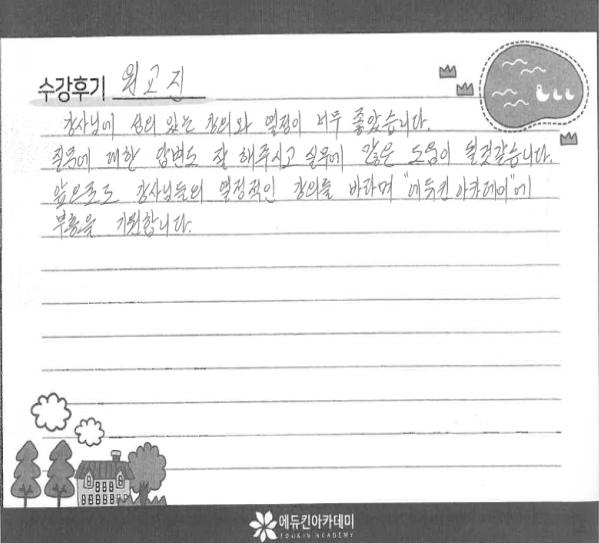 수강후기 원고진
강사님에 성의 있는 강의와 열정이 너무 좋았습니다.
질문에 대한 답변도 잘 해주시고 실무에 많은 도움이 될것같습니다.
앞으로도 강사님들의 열정적인 강의를 바라며 "에듀킨 아카데미"에
부흥을 기원합니다.
에듀킨아카데미
EDUKIN ACADEMY